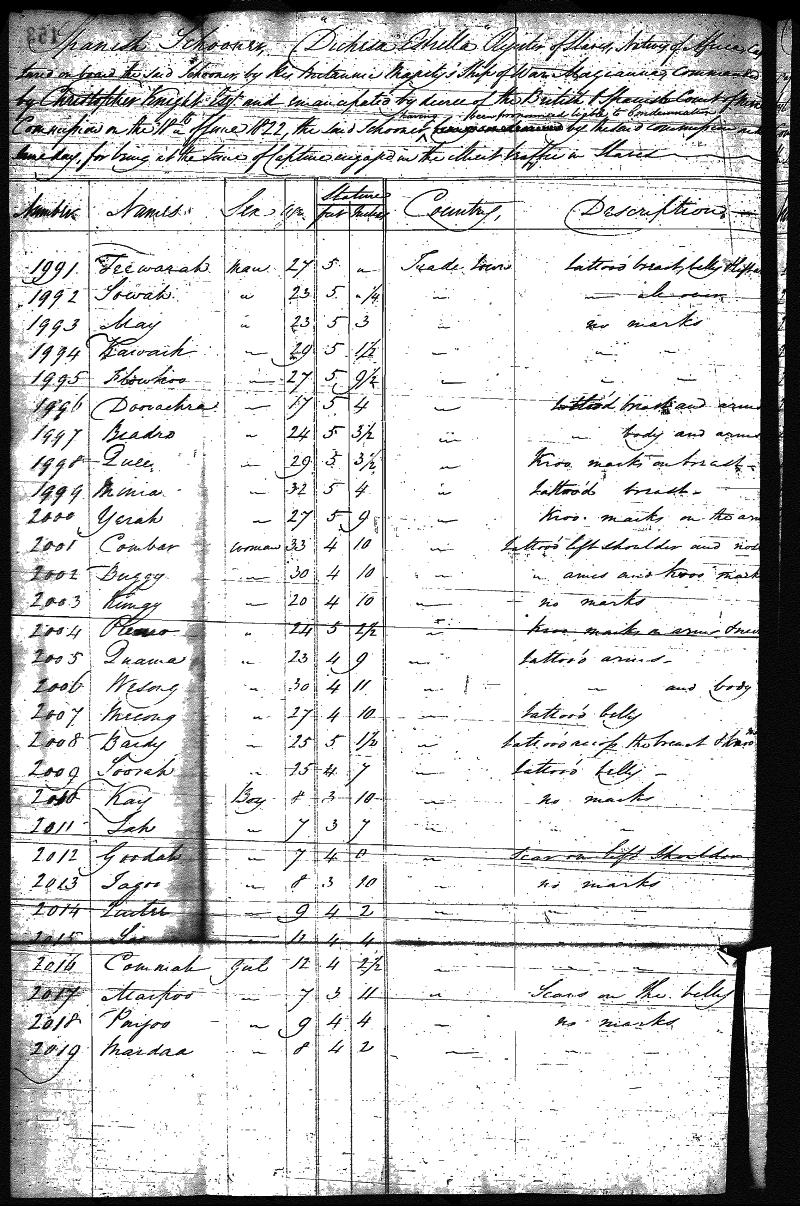 Spanish Schooner "Dichosa Estrella" Register of Slaves, Natives of Africa Cap
tured on board the said Schooner, by His Britannic Majesty's Ship of War Commanded
by Christopher Knight Esqr and emancipated by decree of the British & Spanish Court of
having been pronounced liable to Condemnation
Commission on the 18th of June 1822, the said Schooner by the said Commission
same day, for being at the time of Capture engaged in the illicit traffic in Slaves
Stature
Number Names Sex Age feet Inches Country Description
1991 man 27 5 " Trade town tattoo'd breast, belly &
1992 Sowah " 23 5 " 1/4 " — all over
1993 May " 23 5 3 " no marks
1994 Kawaih — 29 5 1½ " " "
1995 — 27 5 9½ — — —
1996 — 17 5 4 " tattoo'd breast and arms
1997 Beadro " 24 5 3½ " — body and arms
1998 Quee — 29 5 3½ " Kroo marks on breast
1999 " 32 5 4 " tattoo'd breast
2000 Yerah " 27 5 9 " Kroo marks on the arm
2001 Combar woman 33 4 10 " tattoo'd left shoulder and nose
2002 Buggy — 30 4 10 " " arms and Kroo mark
2003 Kimgy — 20 4 10 — no marks
2004 " 24 5 2½ " Kroo marks on arms &
2005 Quama " 23 4 9 " tattoo'd arms
2006 Wesong " 30 4 11 " — and body
2007 " 27 4 10 — tattoo'd belly
2008 Bardy — 25 5 1½ " tattoo'd across the breast &
2009 Soorah " 25 4 7 — tattoo'd belly
2010 Kay Boy 8 3 10 — no marks
2011 Sah " 7 3 7 — " "
2012 Goodah " 7 4 0 " Scar on left Shoulder
2013 Jagoo " 8 3 10 " no marks
2014 — 9 4 2 " " —
2015 " 11 4 4
2016 Commah Girl 12 4 2½ — — —
2017 — 7 3 11 " Scars on the belly
2018 " 9 4 4 " no marks
2019 Mardaa " 8 4 2 — — —